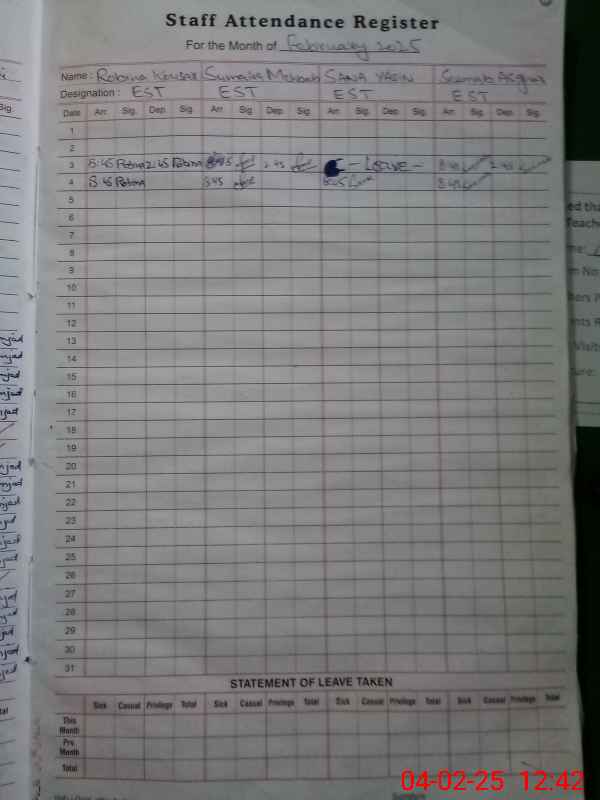 Staff Attendance Register
For the Month of February 2025
Name : Robina Kousar Sumaira Mehboob SANA YASIN Sumaib Asghar
Designation : EST EST EST EST
Date Arr. Sig. Dep. Sig. Arr. Sig. Dep. Sig. Arr. Sig. Dep. Sig. Arr. Sig. Dep. Sig.
1
2
3 8:45 Robina 2:45 Robina 8:45 2:45 - LEAVE - 8:45 2:45
4 8:45 Robina 8:45 8:45 8:45
5
6
7
8
9
10
11
12
13
14
15
16
17
18
19
20
21
22
23
24
25
26
27
28
29
30
31
STATEMENT OF LEAVE TAKEN
Sick Casual Privilege Total Sick Casual Privilege Total Sick Casual Privilege Total Sick Casual Privilege Total
This Month
Pre Month
Total
04-02-25 12:42